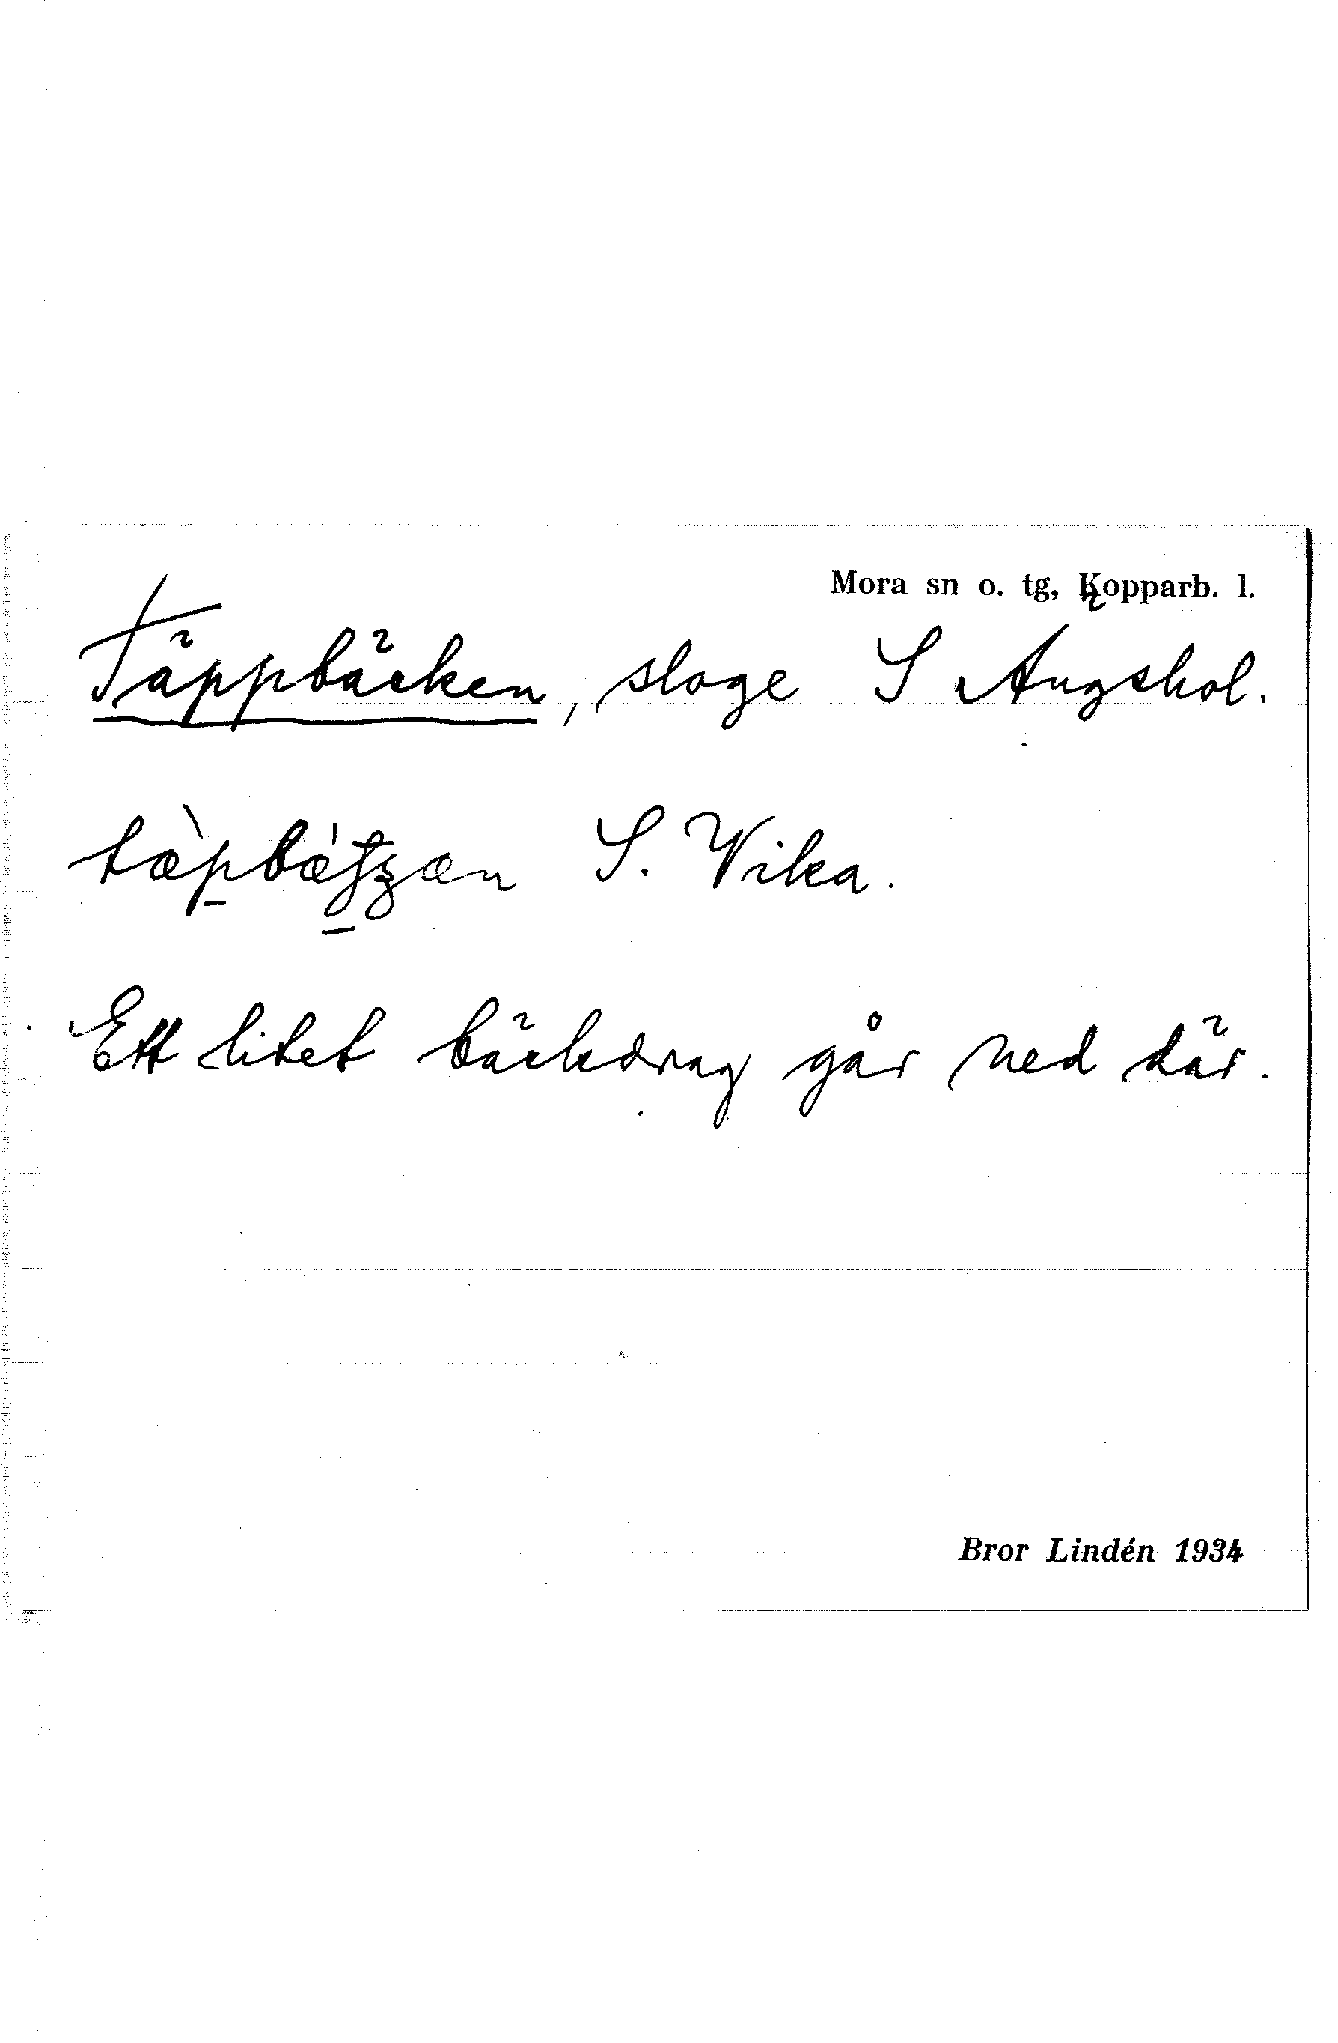 Mora sn o. tg, Kopparb. l.
Täppbäcken, sloge S Angskol.
S. Vika.
Ett litet bäckdrag går ned där.
Bror Lindén 1934